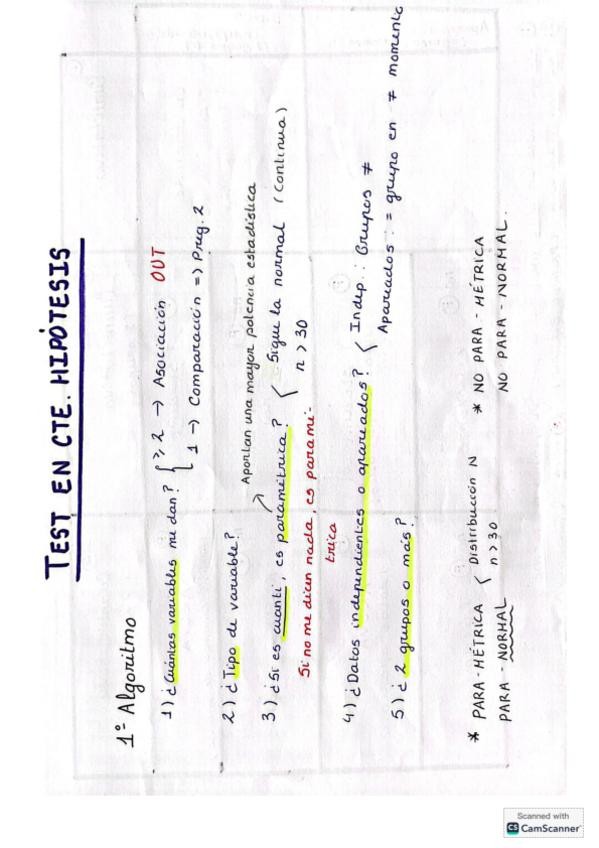 TEST EN CTE. HIPÓTESIS
1º Algoritmo
1) ¿Cuántas variables me dan? { ≥ 2 → Asociación OUT
1 → Comparación => Preg. 2
2) ¿Tipo de variable?
Aportan una mayor potencia estadística
3) ¿Si es cuanti, es paramétrica? { Sigue la normal (continua)
n > 30
Si no me dicen nada, es paramé-
trica
4) ¿Datos independientes o apareados? { Indep.: Grupos ≠
Apareados: = grupo en ≠ momento
5) ¿2 grupos o más?
* PARA-MÉTRICA { Distribución N
n > 30
PARA-NORMAL
* NO PARA-MÉTRICA
NO PARA-NORMAL.
Scanned with
CS CamScanner